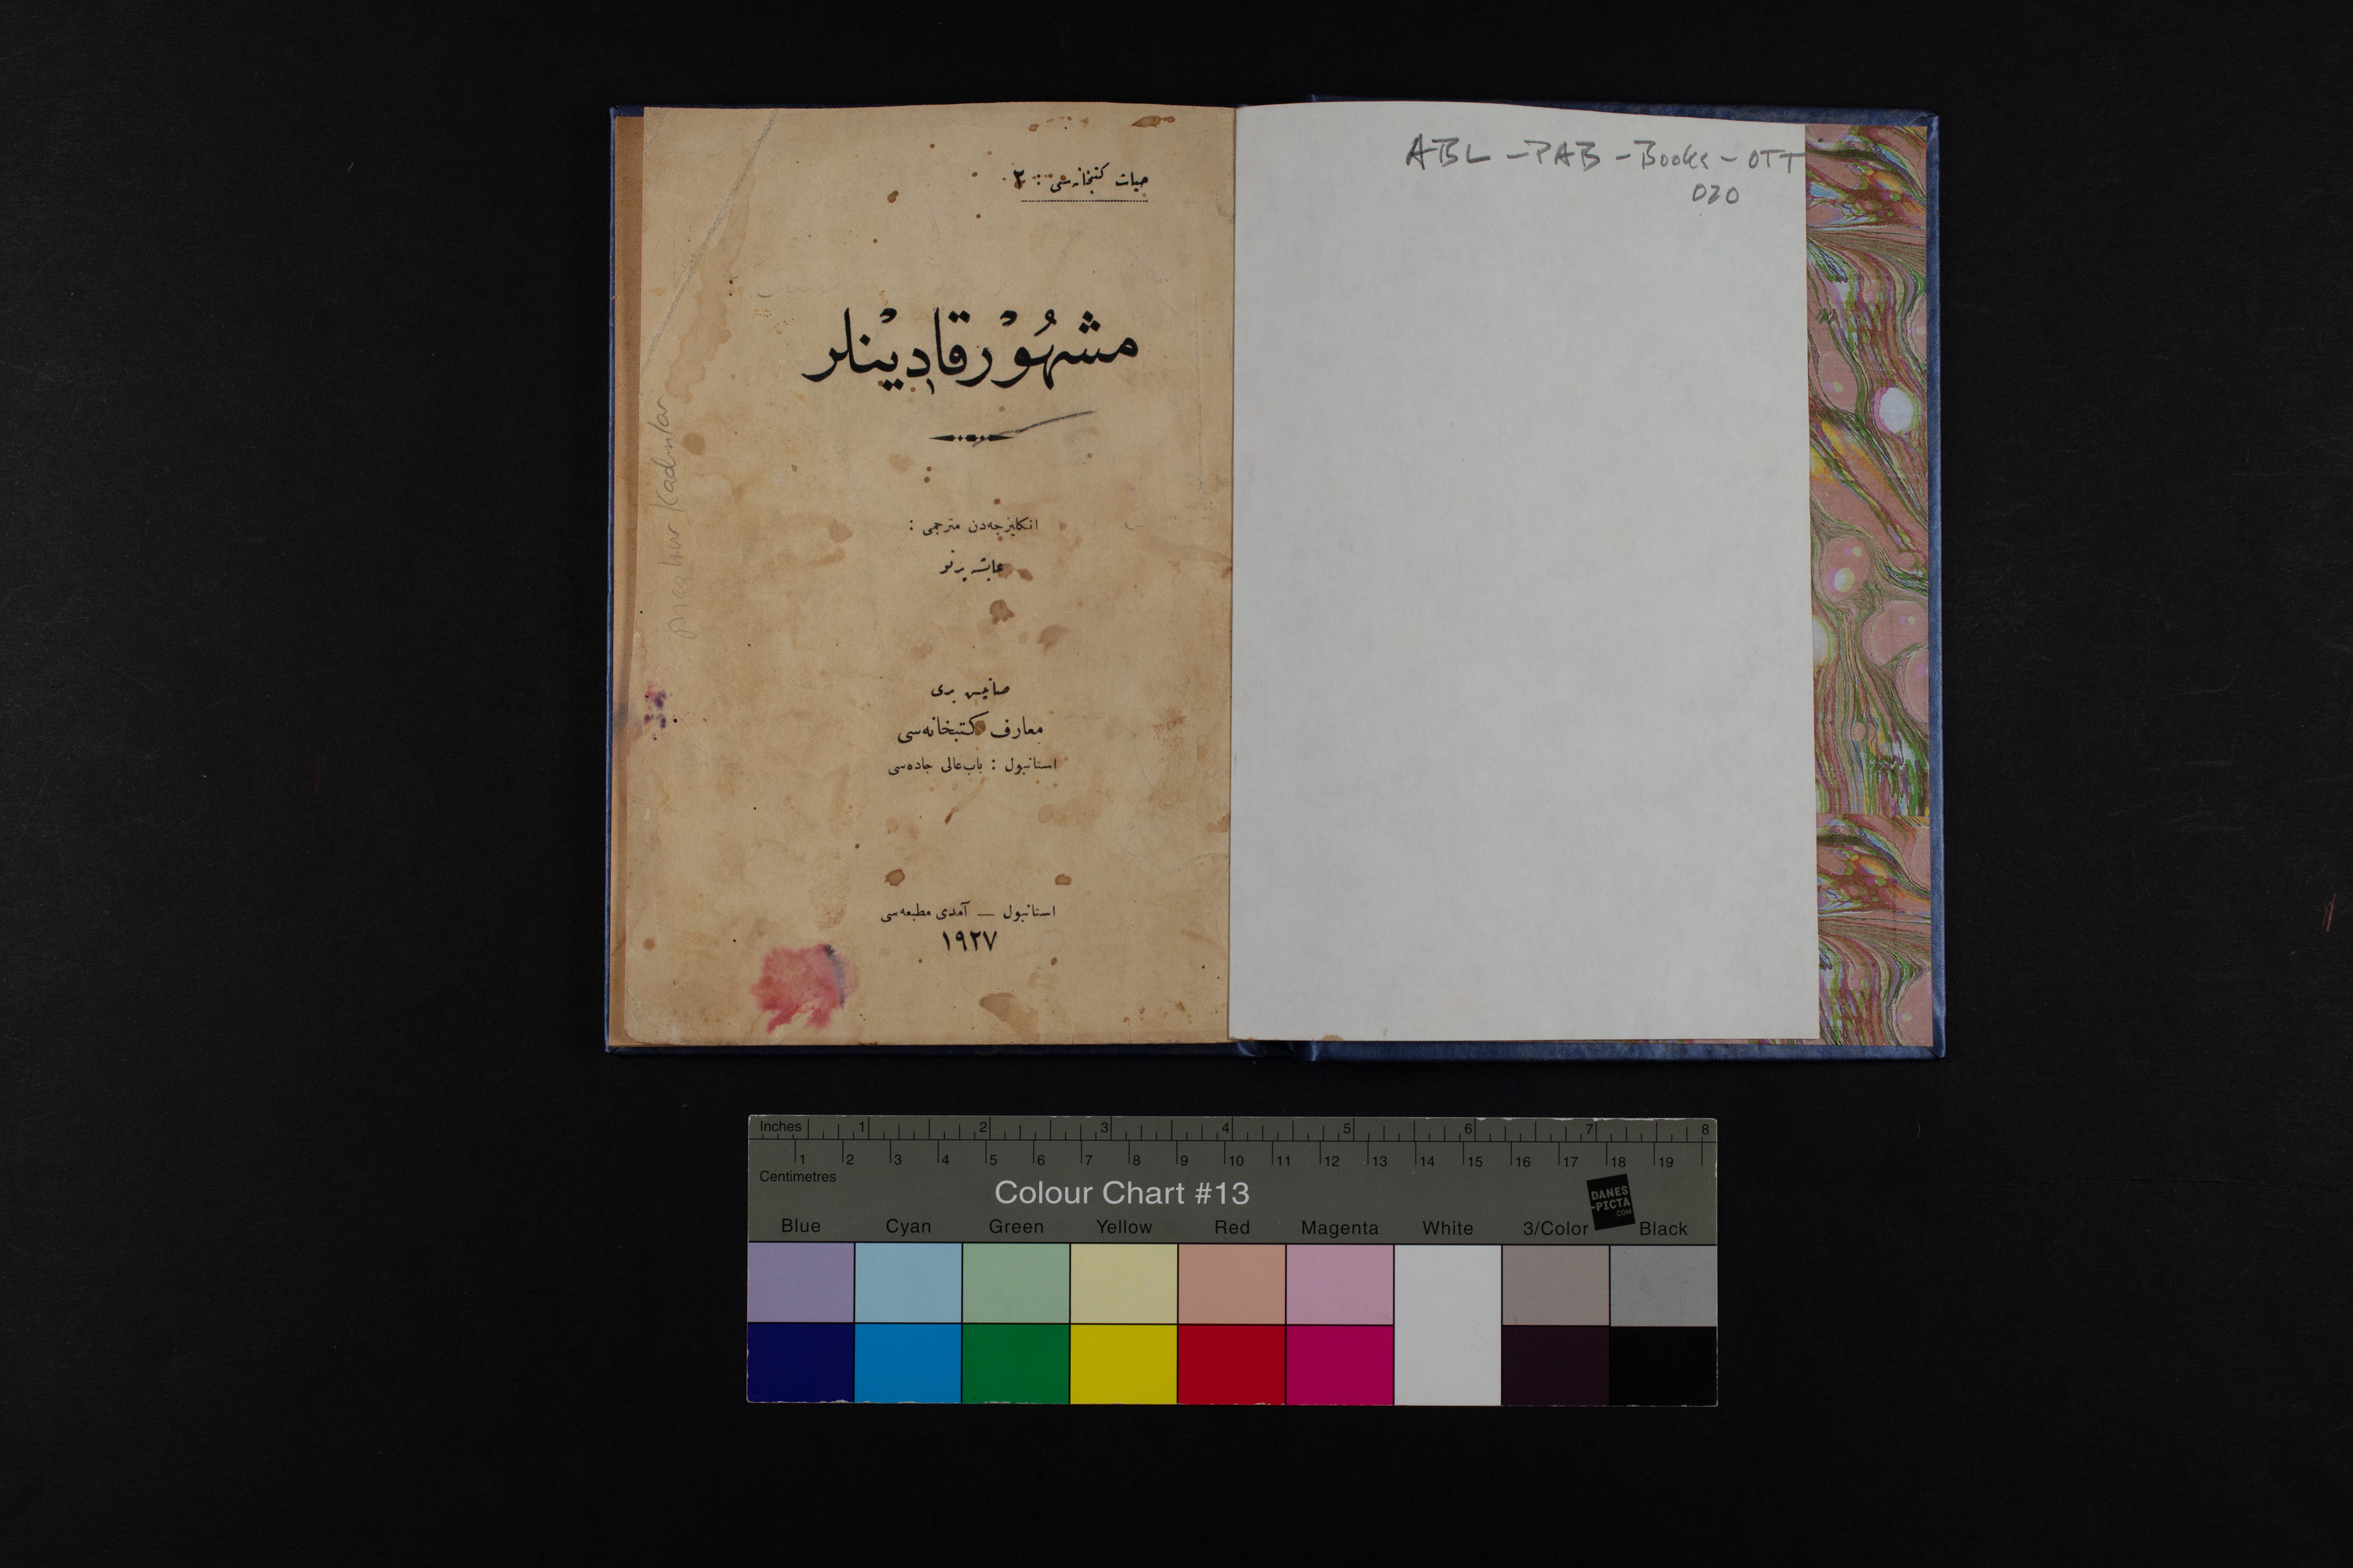 حیات کتبخانه‌سی : ٢
مشهور قادینلر
انکلیزجه‌دن مترجمی :
عایشه پرتو
صاتیش یری
معارف کتبخانه‌سی
استانبول : باب‌عالی جاده‌سی
استانبول — آمدی مطبعه‌سی
١٩٢٧
meşhur Kadınlar
ABL - PAB - Books - OTT
020
Inches 1 2 3 4 5 6 7 8
1 2 3 4 5 6 7 8 9 10 11 12 13 14 15 16 17 18 19
Centimetres
Colour Chart #13
DANES
-PICTA
.COM
Blue Cyan Green Yellow Red Magenta White 3/Color Black